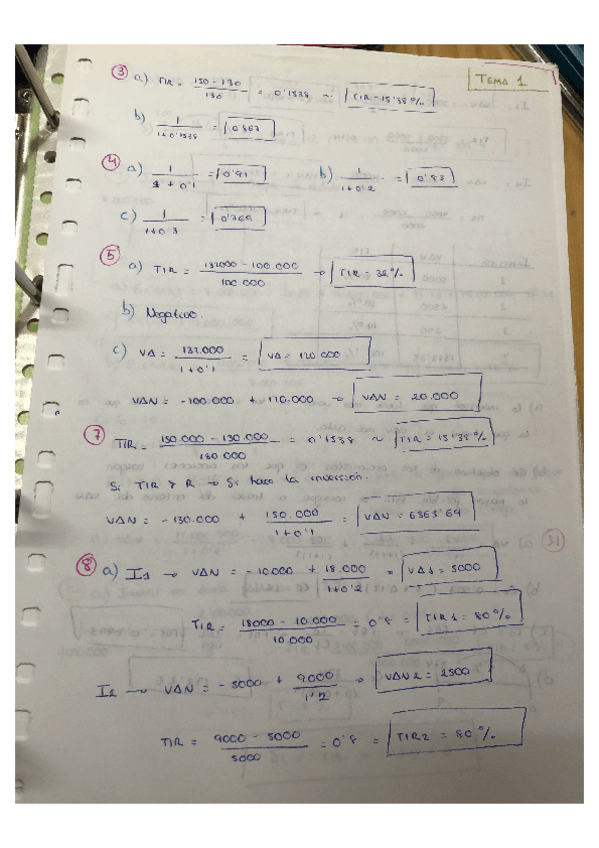 TEMA 1
③ a) TIR = 150 - 130 / 130 = 0'1538 ~ TIR = 15'38%
b) 1 / 1+0'1538 = 0'867
④ a) 1 / 1+0'1 = 0'91 b) 1 / 1+0'2 = 0'83
c) 1 / 1+0'3 = 0'769
⑤ a) TIR = 132000 - 100.000 / 100.000 → TIR = 32%
b) Negativo.
c) VA = 132.000 / 1+0'1 = VA = 120.000
VAN = -100.000 + 120.000 → VAN = 20.000
⑦ TIR = 150.000 - 130.000 / 130.000 = 0'1538 ~ TIR = 15'38%
Si TIR > R → Si hace la inversión.
VAN = -130.000 + 150.000 / 1+0'1 = VAN = 6363'64
⑧ a) I1 → VAN = -10.000 + 18.000 / 1+0'2 = VA1 = 5000
TIR = 18000 - 10.000 / 10.000 = 0'8 = TIR1 = 80%
I2 → VAN = -5000 + 9000 / 1'2 → VAN2 = 2500
TIR = 9000 - 5000 / 5000 = 0'8 = TIR2 = 80%